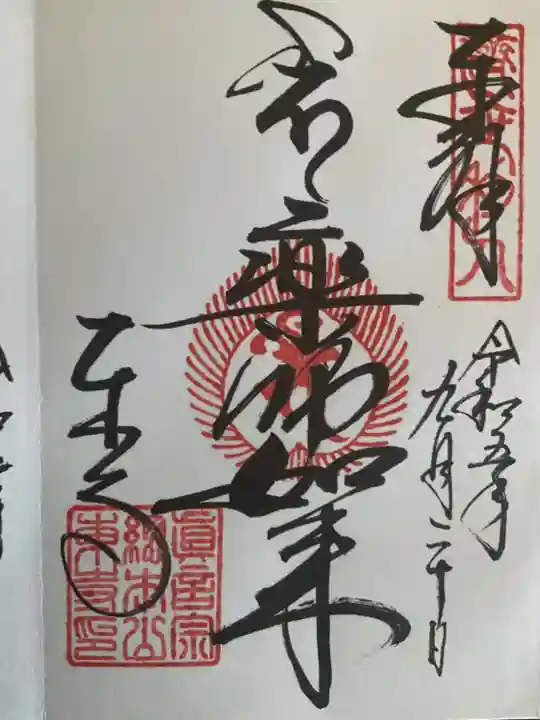 奉拝
令和五年
九月二十日
薬師如来
東寺
眞言宗
總本山
東寺印